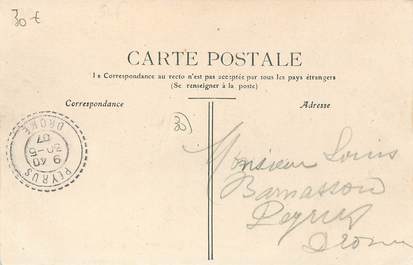 30 €
CARTE POSTALE
La Correspondance au recto n'est pas acceptée par tous les pays étrangers
(Se renseigner à la poste)
Correspondance
Adresse
30
PEYRUS
9 40
30 - 5
07
DROME
Monsieur Louis
Barnasson
Peyrus
Drome